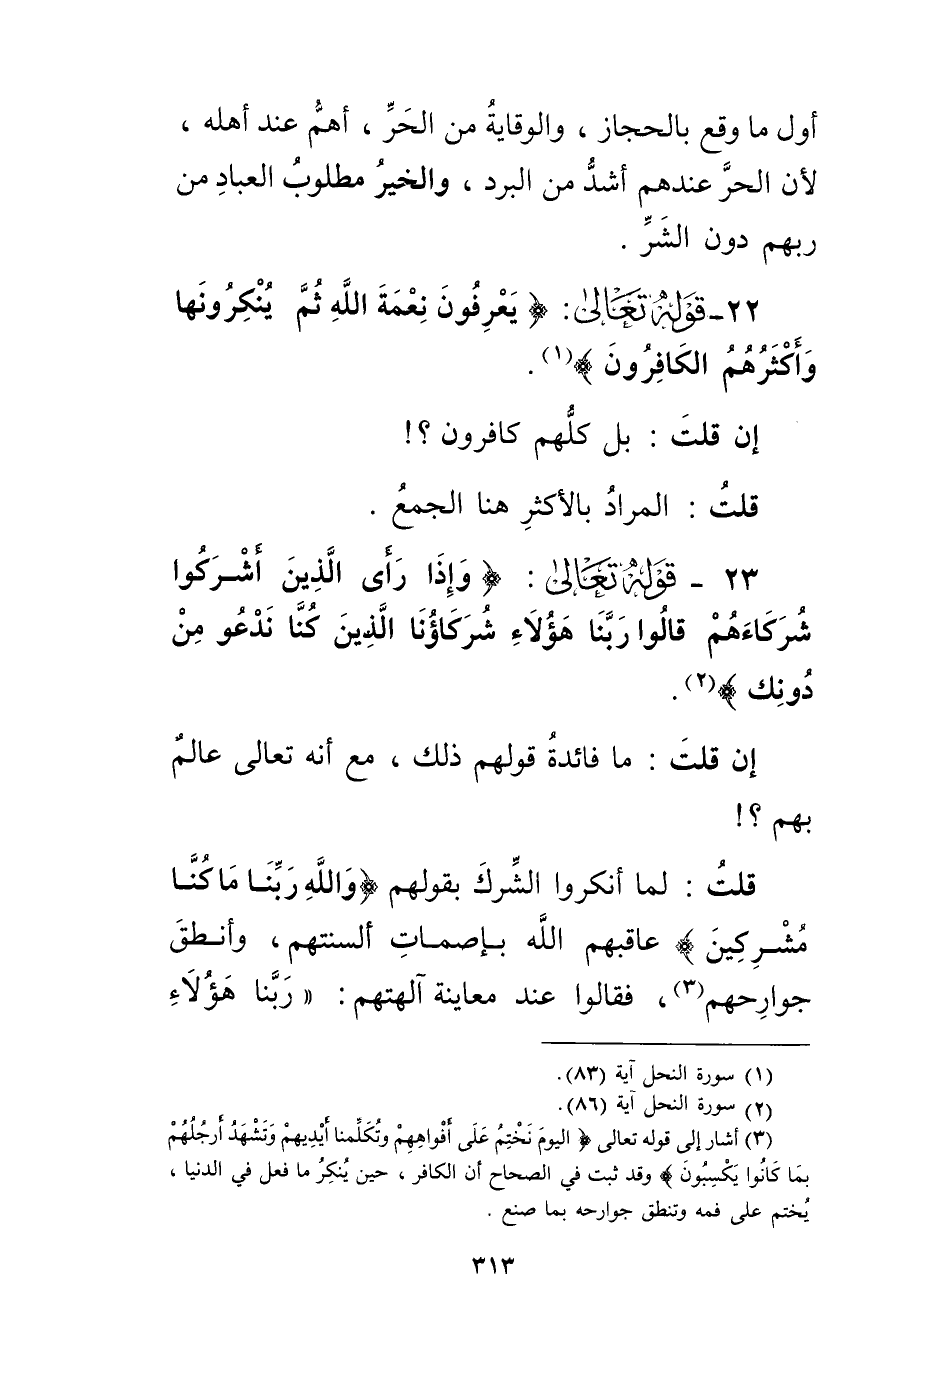 أول ما وقع بالحجاز ، والوقايةُ من الحَرِّ ، أهمُّ عند أهله ،
لأن الحرَّ عندهم أشدُّ من البرد ، والخيرُ مطلوبُ العبادِ من
ربهم دون الشَرِّ .
٢٢ـ قَوْلُهُ تَعَالَىٰ : ﴿ يَعْرِفُونَ نِعْمَةَ اللَّهِ ثُمَّ يُنْكِرُونَها
وَأَكْثَرُهُمُ الكَافِرُونَ ﴾(١) .
إن قلتَ : بل كلُّهم كافرون ؟!
قلتُ : المرادُ بالأكثرِ هنا الجمعُ .
٢٣ ـ قَوْلُهُ تَعَالَىٰ : ﴿ وَإِذَا رَأَى الَّذِينَ أَشْرَكُوا
شُرَكَاءَهُمْ قالُوا رَبَّنَا هَؤُلَاءِ شُرَكَاؤُنَا الَّذِينَ كُنَّا نَدْعُو مِنْ
دُونِك ﴾(٢) .
إن قلتَ : ما فائدةُ قولهم ذلك ، مع أنه تعالى عالمٌ
بهم ؟!
قلتُ : لما أنكروا الشِّركَ بقولهم ﴿وَاللَّهِ رَبِّنَا مَا كُنَّا
مُشْرِكِينَ ﴾ عاقبهم اللَّه بإصماتِ ألسنتهم ، وأنطقَ
جوارِحهم(٣) ، فقالوا عند معاينة آلهتهم : « رَبَّنا هَؤُلَاءِ
(١) سورة النحل آية (٨٣).
(٢) سورة النحل آية (٨٦).
(٣) أشار إلى قوله تعالى ﴿ اليومَ نَخْتِمُ عَلَى أَفْواهِهِمْ وتُكَلِّمنا أَيْدِيهمْ وَتَشْهَدُ أَرجُلُهُمْ
بمَا كَانُوا يَكْسِبُونَ ﴾ وقد ثبت في الصحاح أن الكافر ، حين يُنكِرُ ما فعل في الدنيا ،
يُختم على فمه وتنطق جوارحه بما صنع .
٣١٣